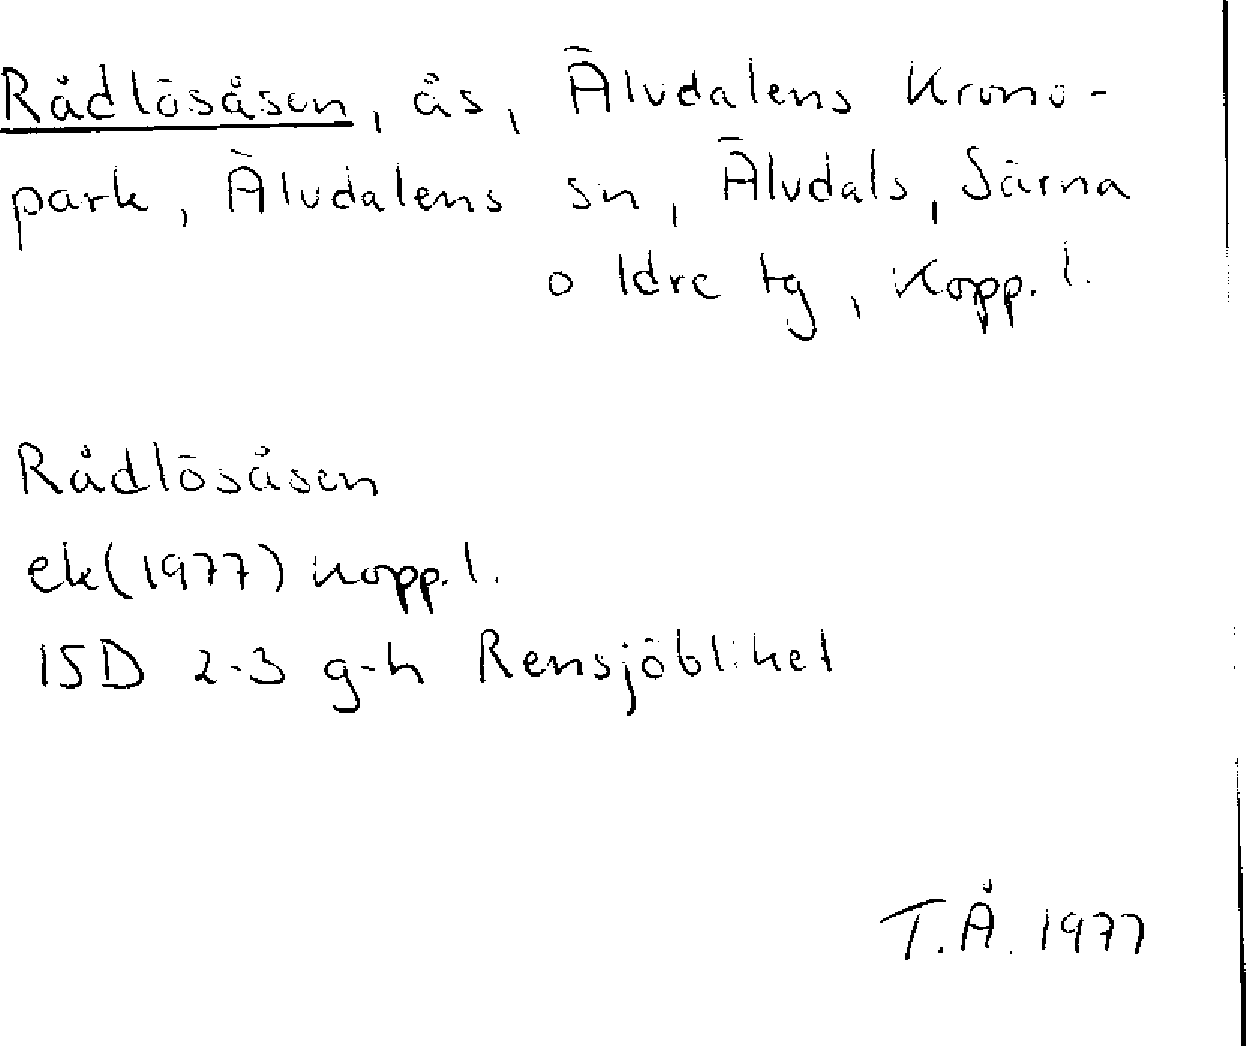 Rådlösåsen, ås, Älvdalens Krono-
park, Älvdalens sn, Älvdals, Särna
o Idre tg, Kopp. l.
Rådlösåsen
ek(1977) Kopp. l.
15D 2-3 g-h Rensjöbliket
T.Å. 1977